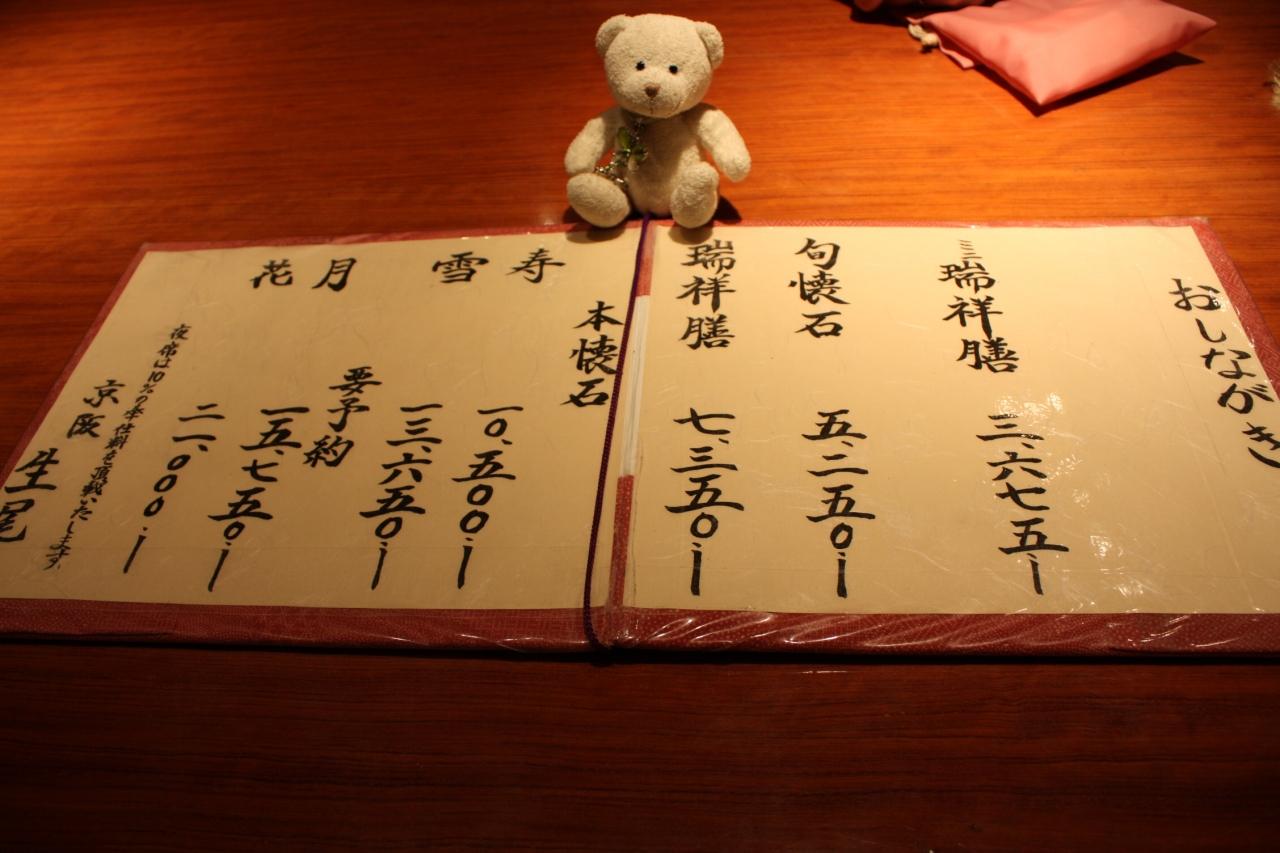 おしながき
ミニ瑞祥膳 三、六七五、ー
旬懐石 五、二五〇、ー
瑞祥膳 七、三五〇、ー
本懐石
寿 一〇、五〇〇、ー
雪 一三、六五〇、ー
要予約
月 一五、七五〇、ー
花 二一、〇〇〇、ー
夜席は10%の奉仕料を頂戴いたします
京阪 生尾